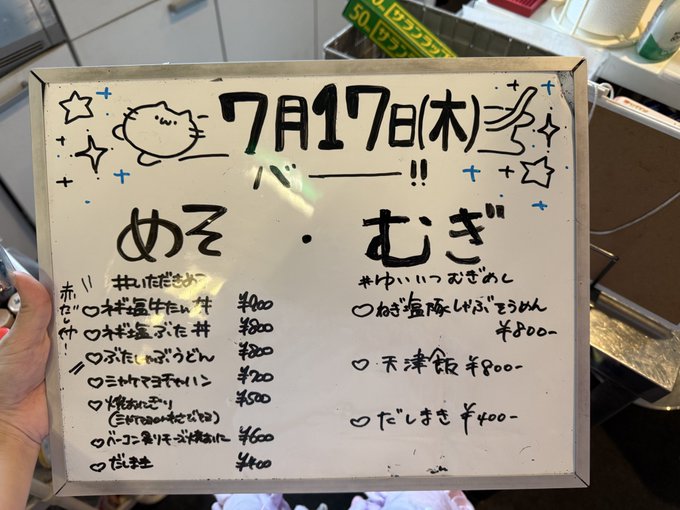 50m サランラップ
7月17日(木)
バーーー!!
めそ・むぎ
#いただきめそ
赤だし付!
♡ネギ塩牛たん丼 ¥900
♡ネギ塩ぶた丼 ¥800
♡ぶたしゃぶうどん ¥800
♡ミャケマヨチャーハン ¥700
♡焼おにぎり ¥500
♡ベーコン炙りチーズ焼おに ¥600
♡だしまき ¥400
#ゆいいつむぎめし
♡ねぎ塩豚しゃぶそうめん
¥800-
♡天津飯 ¥800-
♡だしまき ¥400-